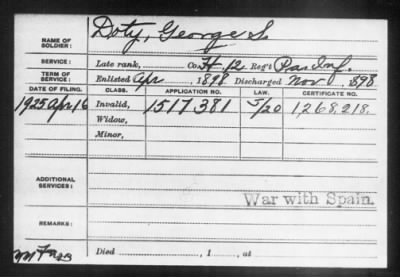 NAME OF SOLDIER: Doty, George S.
SERVICE: Late rank, Co. H, 12 Reg't Pa. Inf.
TERM OF SERVICE: Enlisted Apr , 1898 Discharged Nov , 1898
DATE OF FILING. CLASS. APPLICATION NO. LAW. CERTIFICATE NO.
1925 Apr 16 Invalid, 1517381 J/20 1,268,218.
Widow,
Minor,
ADDITIONAL SERVICES:
War with Spain.
REMARKS:
Died , 1 , at